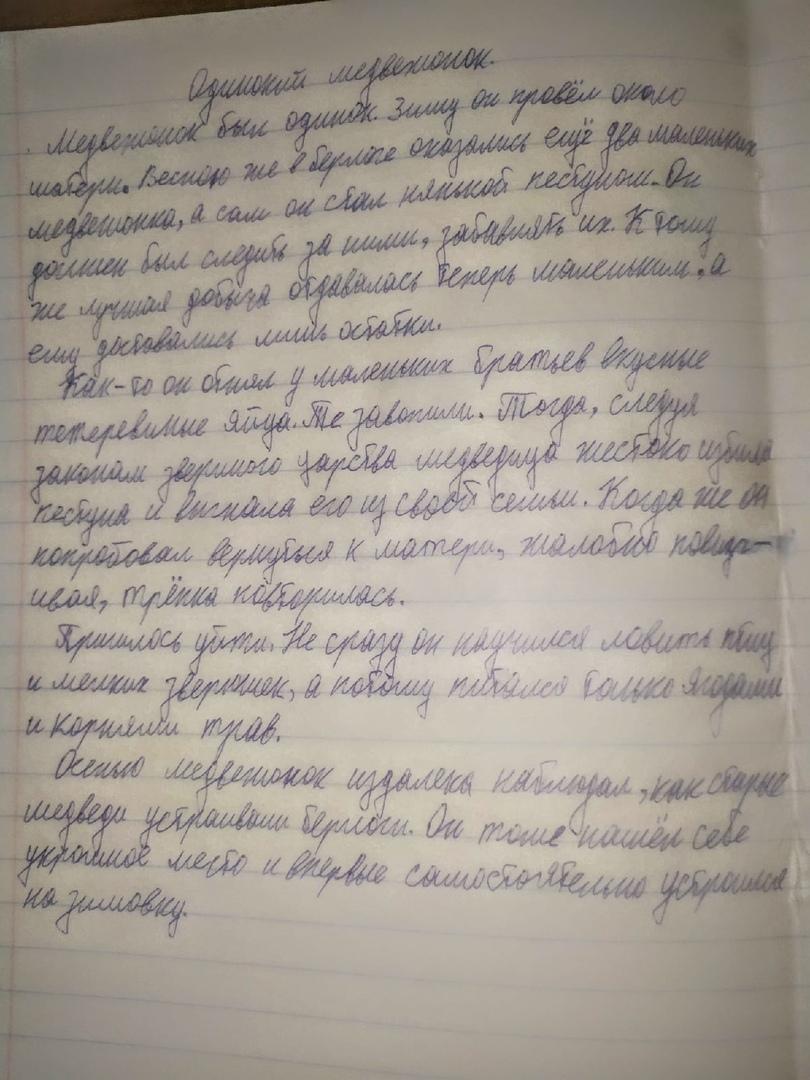 Одинокий медвежонок.
Медвежонок был одинок. Зиму он провёл около
матери. Весною же в берлоге оказались ещё два маленьких
медвежонка, а сам он стал нянькой пестуном. Он
должен был следить за ними, забавлять их. К тому
же лучшая добыча отдавалась теперь маленьким, а
ему доставались лишь остатки.
Как-то он отнял у маленьких братьев вкусные
тетеревиные яйца. Те завопили. Тогда, следуя
законам звериного царства медведица жестоко избила
пестуна и выгнала его из своей семьи. Когда же он
попробовал вернуться к матери, жалобно повизг-
ивая, трёпка повторилась.
Пришлось уйти. Не сразу он научился ловить птиц
и мелких зверюшек, а потому питался только ягодами
и корнями трав.
Осенью медвежонок издалека наблюдал, как старые
медведи устраивали берлоги. Он тоже нашёл себе
укромное место и впервые самостоятельно устроился
на зимовку.